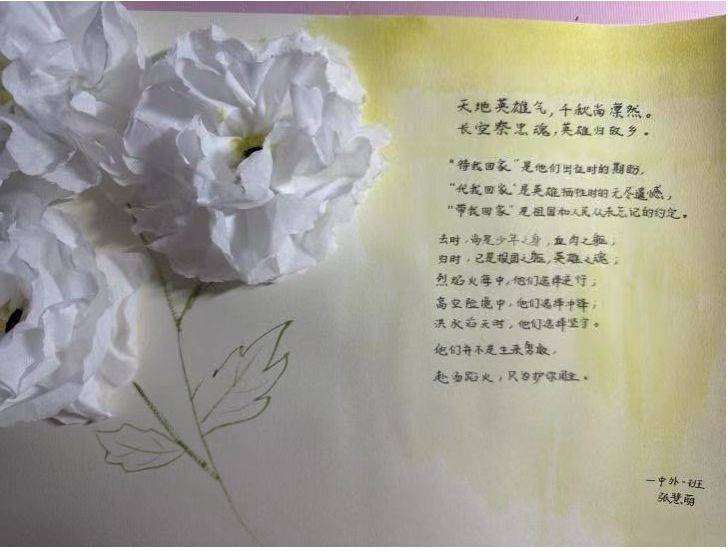 天地英雄气，千秋尚凛然。
长空祭忠魂，英雄归故乡。
“待我回家”是他们出征时的期盼，
“代我回家”是英雄牺牲时的无尽遗憾，
“带我回家”是祖国和人民从未忘记的约定。
去时，尚是少年之身，血肉之躯；
归时，已是报国之躯，英雄之魂；
烈焰火海中，他们选择逆行；
高空险境中，他们选择冲锋；
洪水滔天时，他们选择坚守。
他们并不是生来勇敢，
赴汤蹈火，只为护你周全。
一中外一班
张慧萌